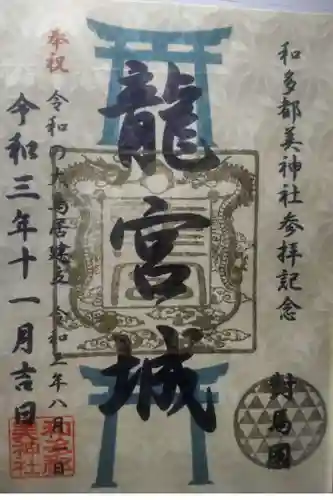 和多都美神社参拝記念
對馬國
龍宮城
奉祝
令和の大鳥居建立 令和三年八月 日
令和三年十一月吉日
和多都
美神社